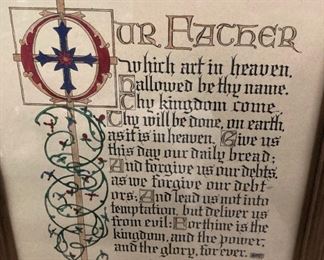 Our Father
which art in heaven,
Hallowed be thy name.
Thy kingdom come.
Thy will be done, on earth,
as it is in heaven, Give us
this day our daily bread;
And forgive us our debts,
as we forgive our debt
ors; And lead us not into
temptation, but deliver us
from evil: For thine is the
kingdom, and the power,
and the glory, for ever.